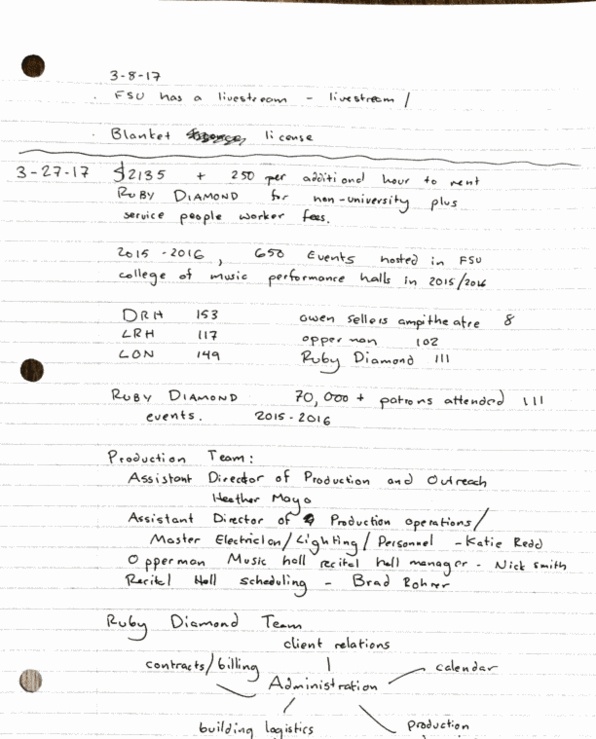 3-8-17
. FSU has a livestream - livestream /
. Blanket license
3-27-17 $2135 + 250 per additional hour to rent
RUBY DIAMOND for non-university plus
service people worker fees.
2015-2016, 650 Events hosted in FSU
college of music performance halls in 2015/2016
DRH 153 owen sellers ampitheatre 8
LRH 117 opperman 102
LON 149 Ruby Diamond 111
RUBY DIAMOND 70,000+ patrons attended 111
events. 2015-2016
Production Team:
Assistant Director of Production and Outreach
Heather Mayo
Assistant Director of Production operations/
Master Electrician/Lighting/Personnel - Katie Redd
Opperman Music hall recital hall manager - Nick Smith
Recital Hall scheduling - Brad Rohrer
Ruby Diamond Team
client relations
contracts/billing calendar
Administration
building logistics production